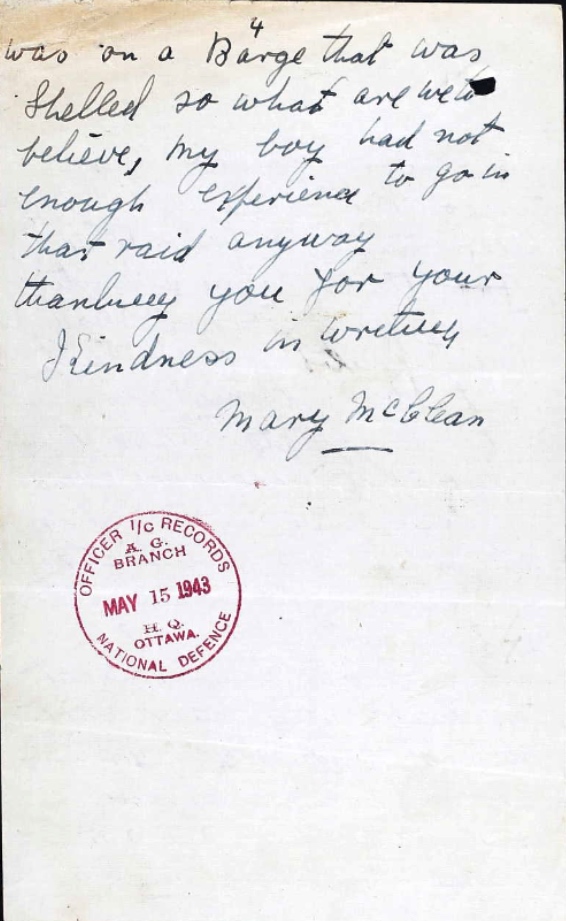 4
was on a Barge that was
Shelled so what are we to
believe, my boy had not
enough experience to go in
that raid anyway
thanking you for your
Kindness in writing
Mary McClean
OFFICER I/C RECORDS
A. G.
BRANCH
MAY 15 1943
H. Q.
OTTAWA.
NATIONAL DEFENCE